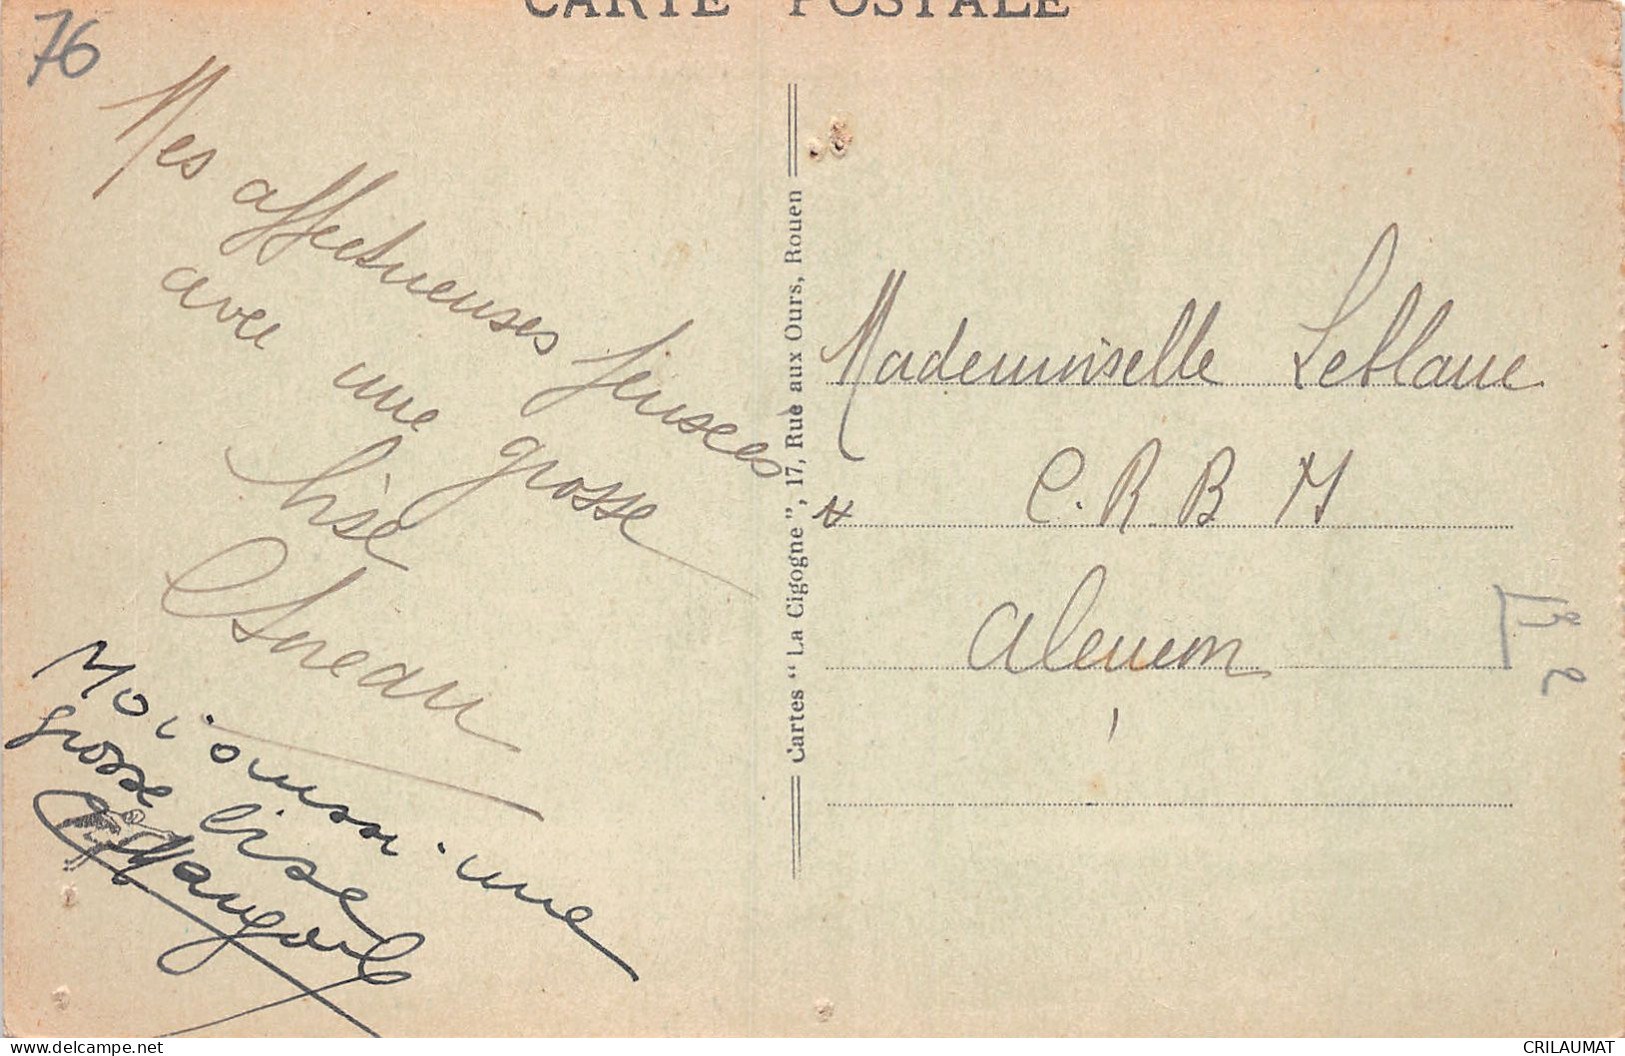 CARTE POSTALE
76
Mes affectueuses pensees
avec une grosse
bise
Moi aussi une
grosse bise
Cartes "La Cigogne", 17, Rue aux Ours, Rouen
Mademoiselle Leblanc
C.R.B M
Alencon
delcampe.net
CRILAUMAT